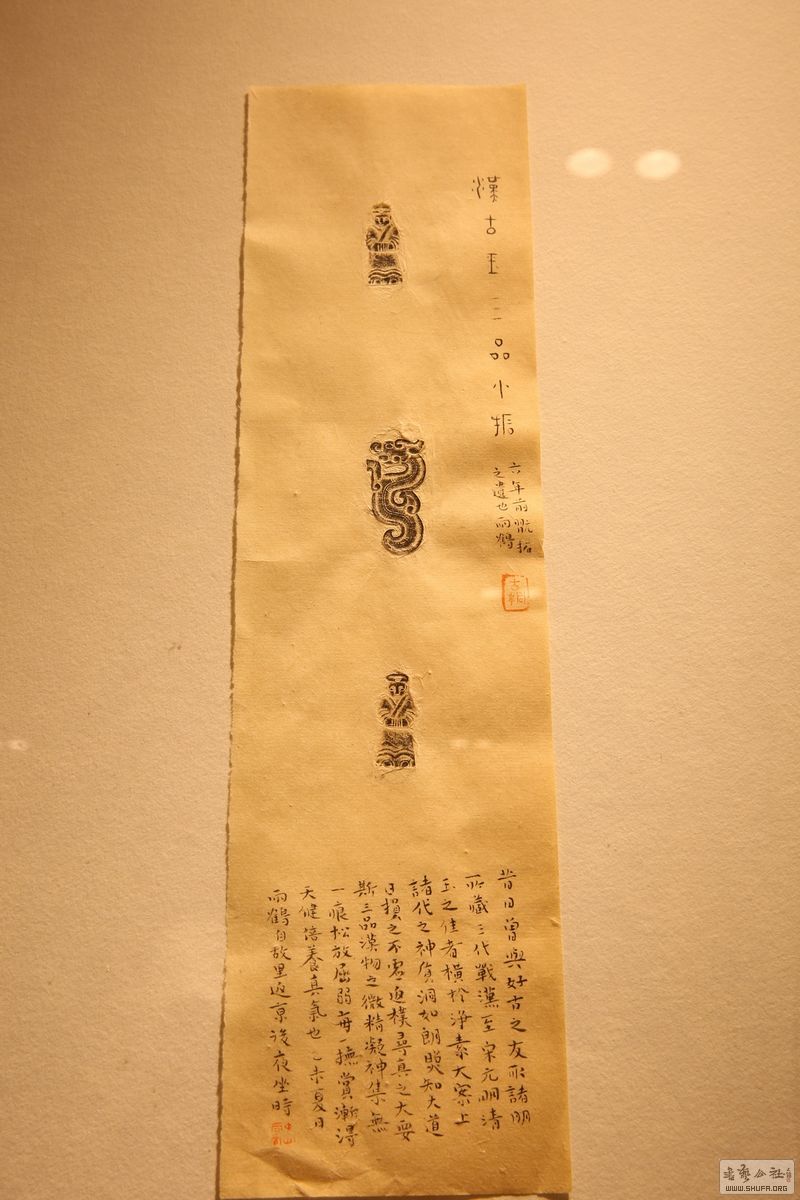 漢古玉三品小振
六年前所拓
之遺也雨鶴
昔日曾與好古之友所諸明
所藏三代戰漢至宋元明清
玉之佳者橫於淨素大案上
諸代之神貌洞如朗照知大道
日損之不虛返樸尋真之大要
斯三品漢物之微精凝神集無
一痕松放孱弱每一撫賞漸得
天健培養真氣也乙未夏日
雨鶴自故里返京後夜坐時
書藝公社
WWW.SHUFA.ORG